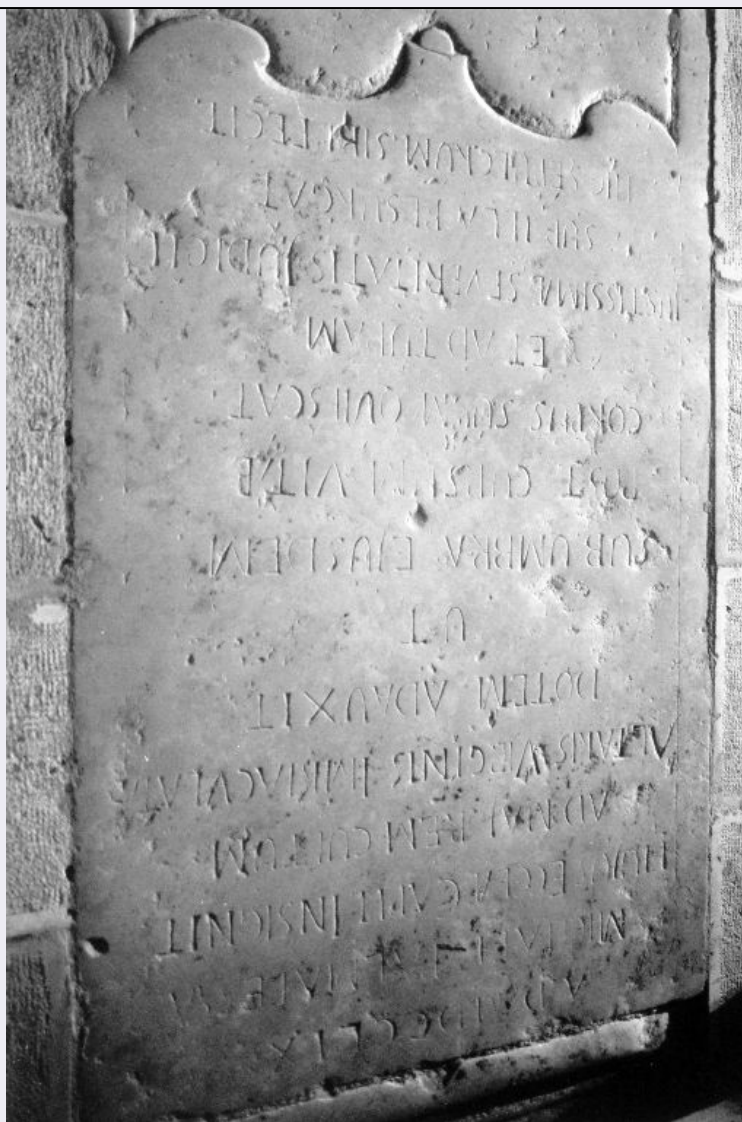 A D MDCCLIX
MICHAEL
HUJUS ECCLÆ CAPIT INSIGNIT
AD MAJREM CULTUM
ALTARIS VIRGINIS IMMACULATÆ
DOTEM ADAUXIT
UT
SUB UMBRA EJUSDEM
POST CURSUM VITÆ
CORPUS SUUM QUIESCAT
ET AD TUBAM
JUSTISSIMÆ SEVERITATIS JUDICII
SUB ILLA RESURGAT
HIC SEPULCRUM SIBI FECIT